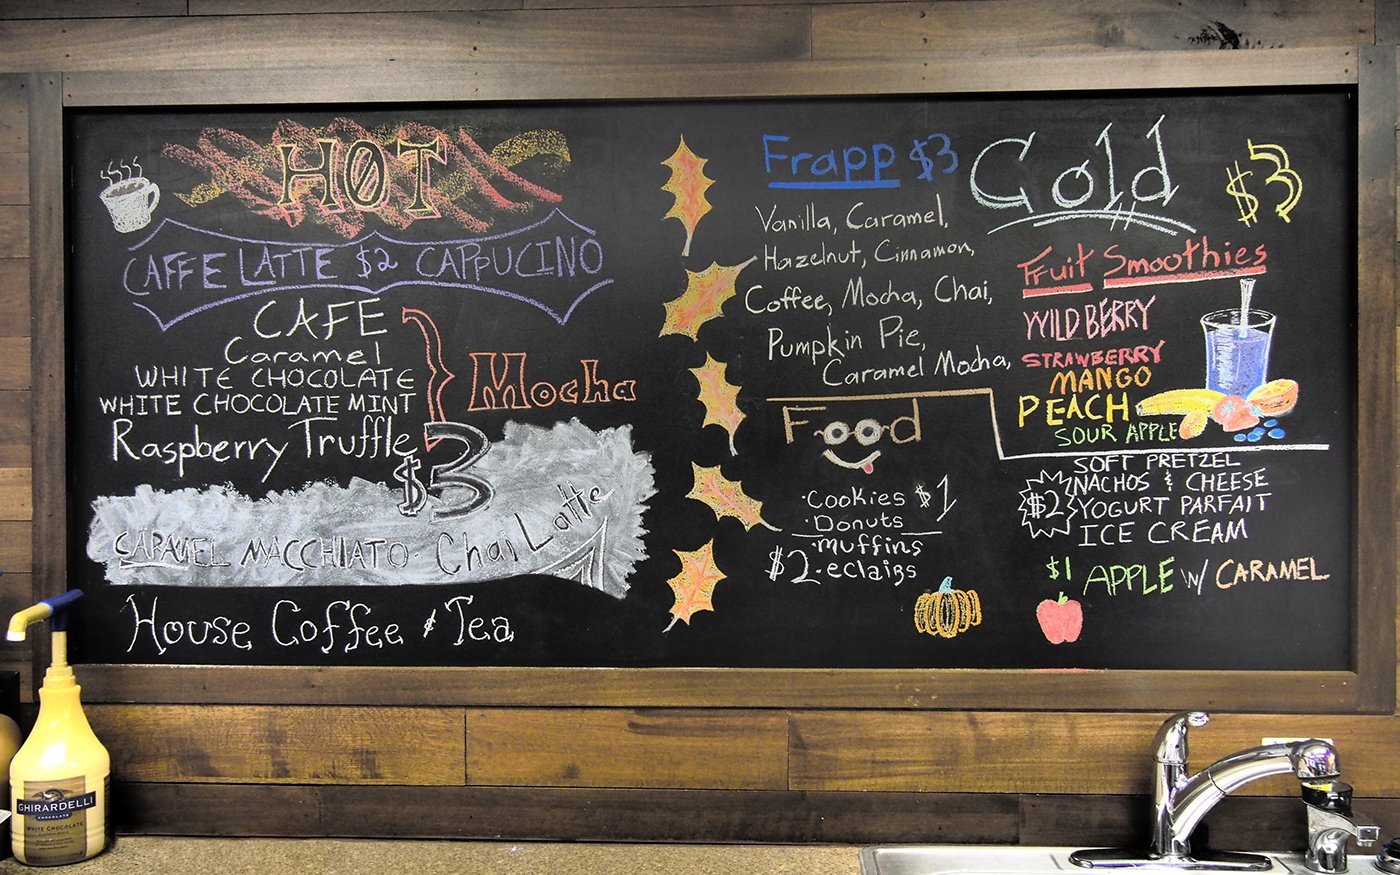 HOT
CAFFE LATTE $2 CAPPUCINO
CAFE
Caramel
WHITE CHOCOLATE
WHITE CHOCOLATE MINT
Raspberry Truffle
Mocha
$3
CARAMEL MACCHIATO · Chai Latte
House Coffee & Tea
Frapp $3
Vanilla, Caramel,
Hazelnut, Cinnamon,
Coffee, Mocha, Chai,
Pumpkin Pie,
Caramel Mocha,
Cold $3
Fruit Smoothies
WILDBERRY
STRAWBERRY
MANGO
PEACH
SOUR APPLE
Food
·Cookies $1
·Donuts
·muffins
$2·eclairs
SOFT PRETZEL
NACHOS & CHEESE
$2 YOGURT PARFAIT
ICE CREAM
$1 APPLE W/ CARAMEL
GHIRARDELLI
CHOCOLATE
WHITE CHOCOLATE